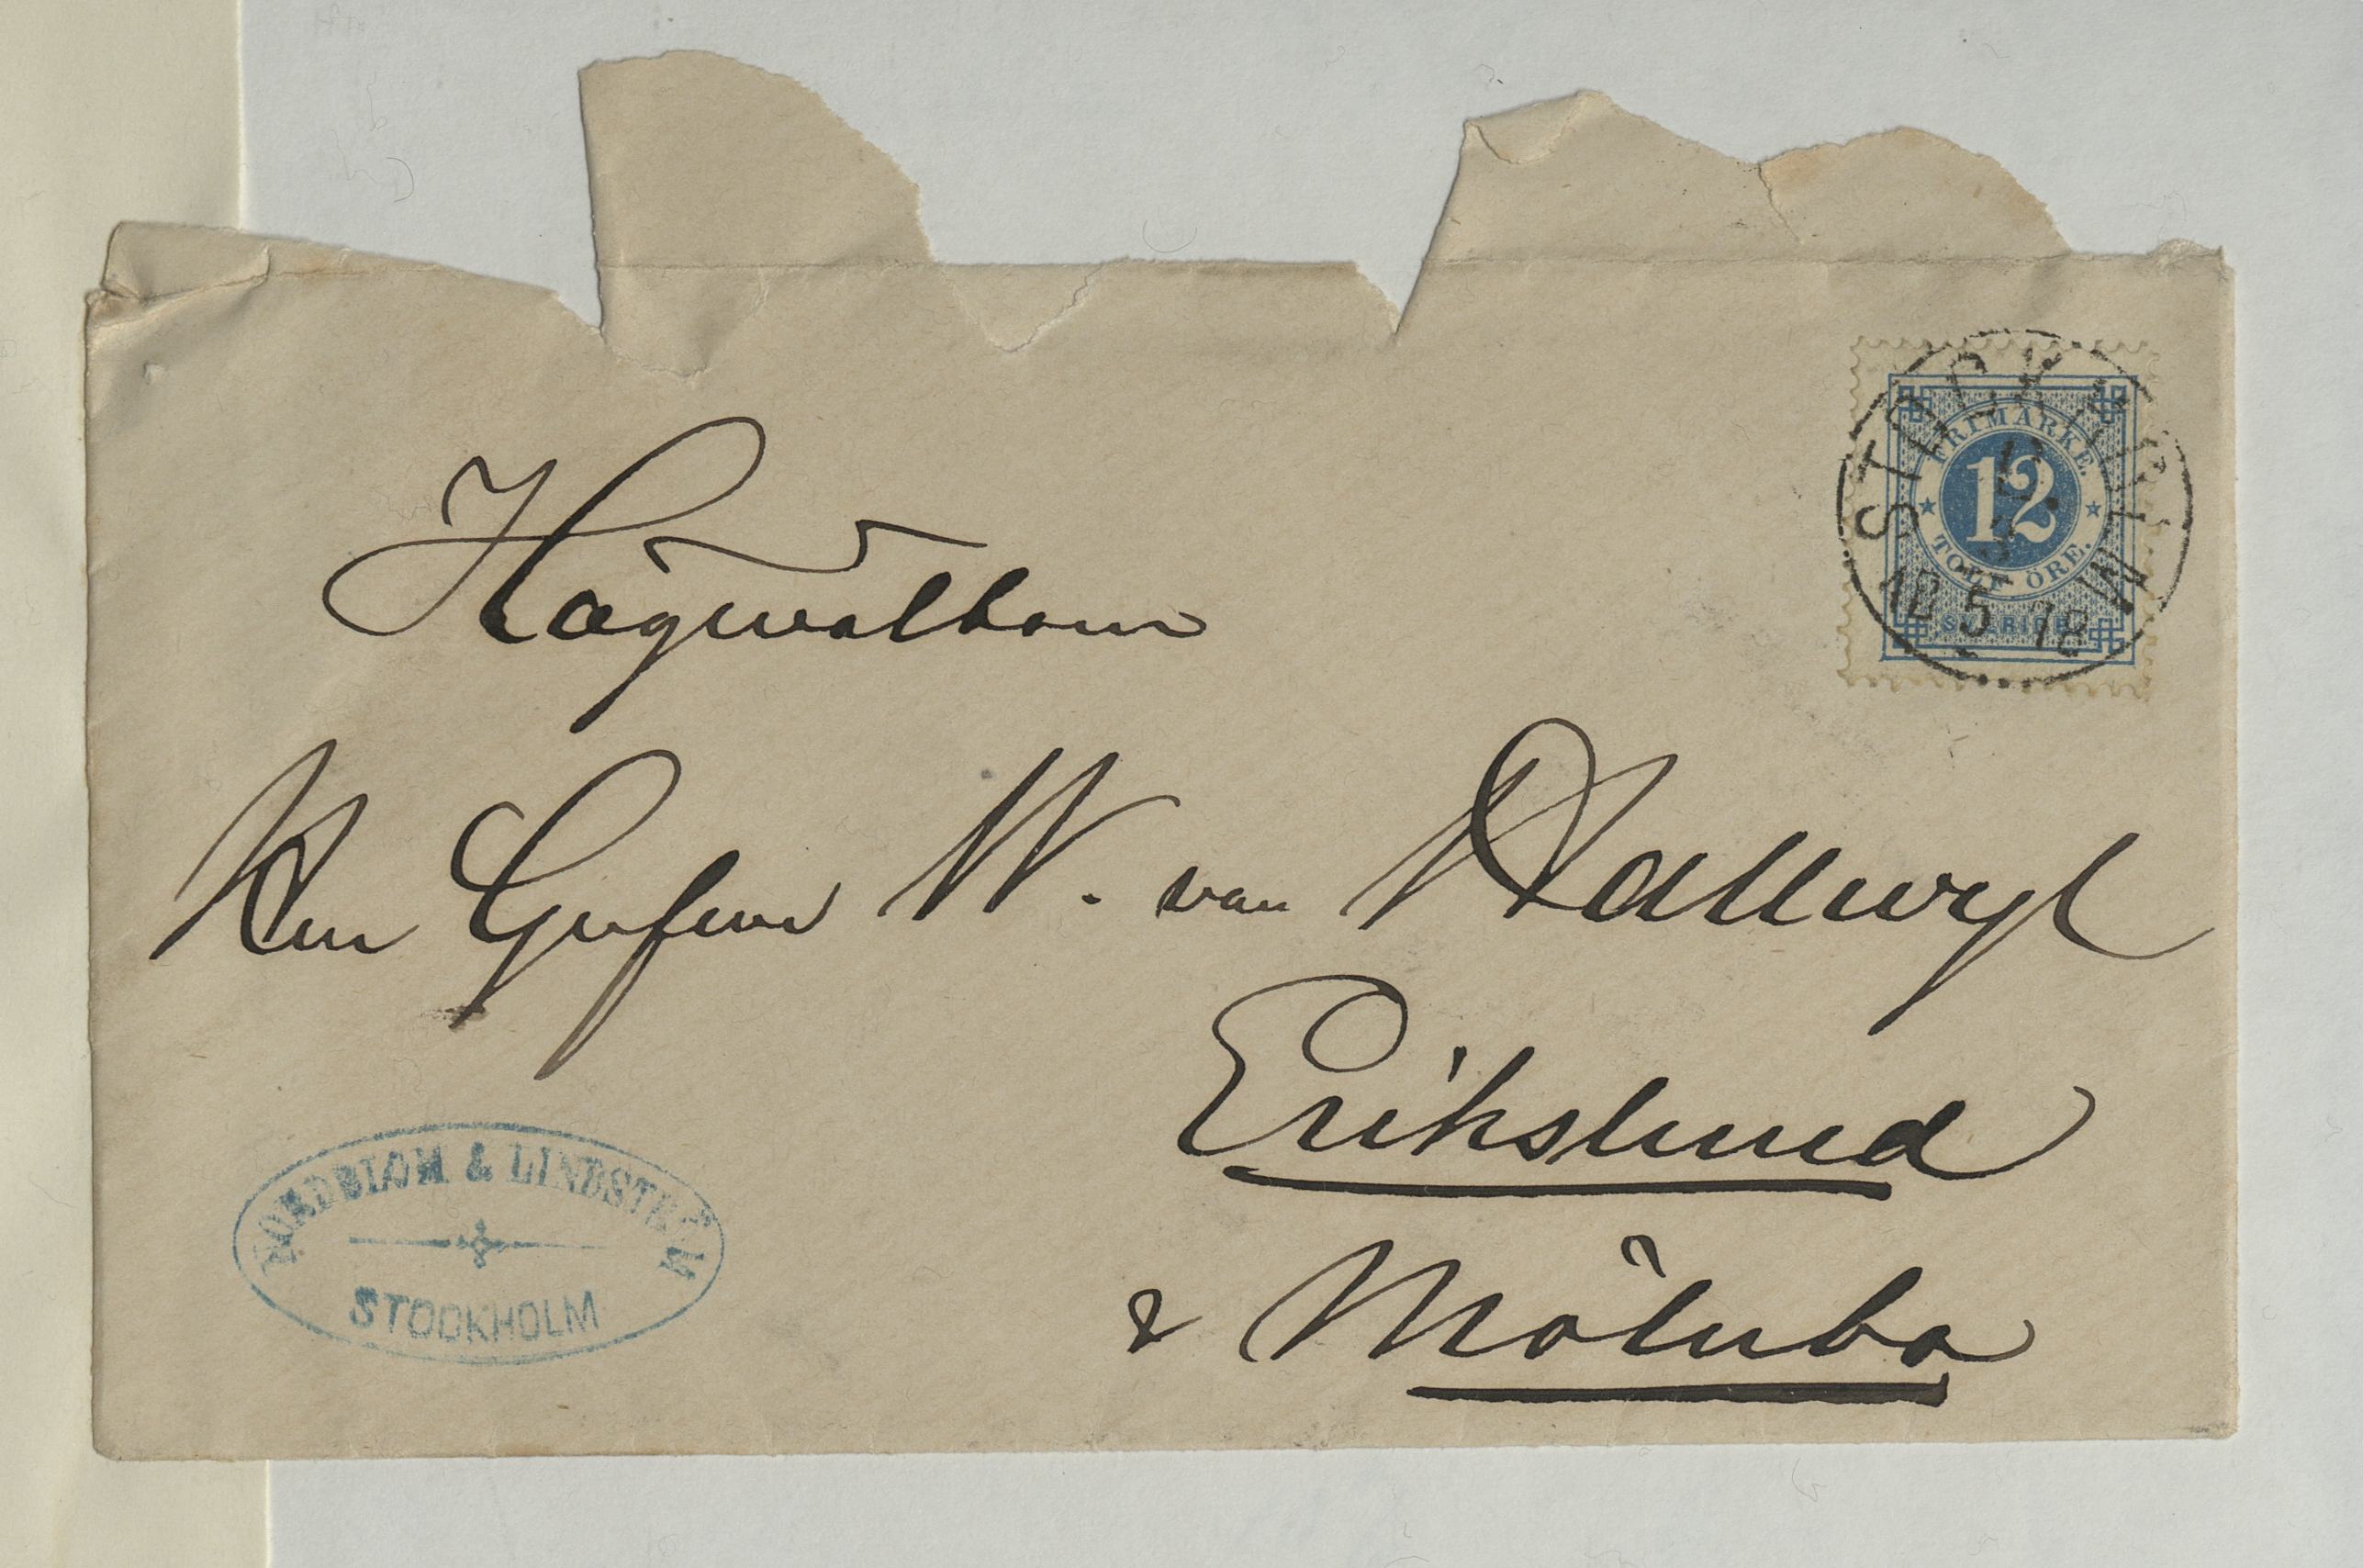 Högwälborne
Herr Grefwe W. von Hallwyl
Erikslund
& Mölnbo
FRIMÄRKE.
12
TOLF ÖRE.
SVERIGE
STOCKHOLM
12 5 78
NORDBLOM & LINDSTRÖM
STOCKHOLM